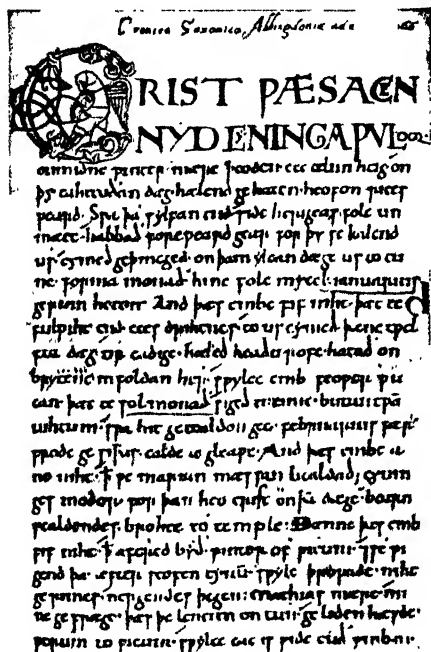 Cronica Saxonica, Abbingdoniæ
CRIST ǷÆS ACEN
NYD CYNINGA ǷVLdor
on midne ƿinter mære þeoden ece ælmihtig on
þy eahteoðan dæg hælend gehaten heofon rices
ƿeard. Sƿa þa sylfan tiid side herigeas folc un
mæte habbað foreƿeard gear for þy se kalend
us cymeð geþincged on þam ylcan dæge us to tu
ne forma monað hine folc mycel ianuarius
gerum heton And þæs embe fif niht þæt te
fulƿiht tiid eces drihtnes to us cymeð þæne tƿel
fta dæg tir eadige hæleð heaðu rofe hatað on
brytene in foldan her sƿylce emb feoƿer ƿu
can þæt te solmonað sigeð to tune butan tƿā
nihtum sƿa hit getealdon geo februarius fær
frode ge siþas ealde ægleaƿe. And þæs embe a
ne niht ꝥ ƿe marian mæssan healdað cynin
ges modor for þan heo crist on þā dæge bearn
ƿealdendes brohte to temple. Ðænne þæs emb
fif niht ꝥ afered byð ƿinter of ƿicum se ƿi
gend þa æfter seofen tynum sƿylc þroƿade niht
gerimes nergendes þegen mathias mære mi
ne ge fræge þæs þe lencten on tun geliden hæfde
ƿerum to ƿicum sƿylce eac is ƿide cuð ymb